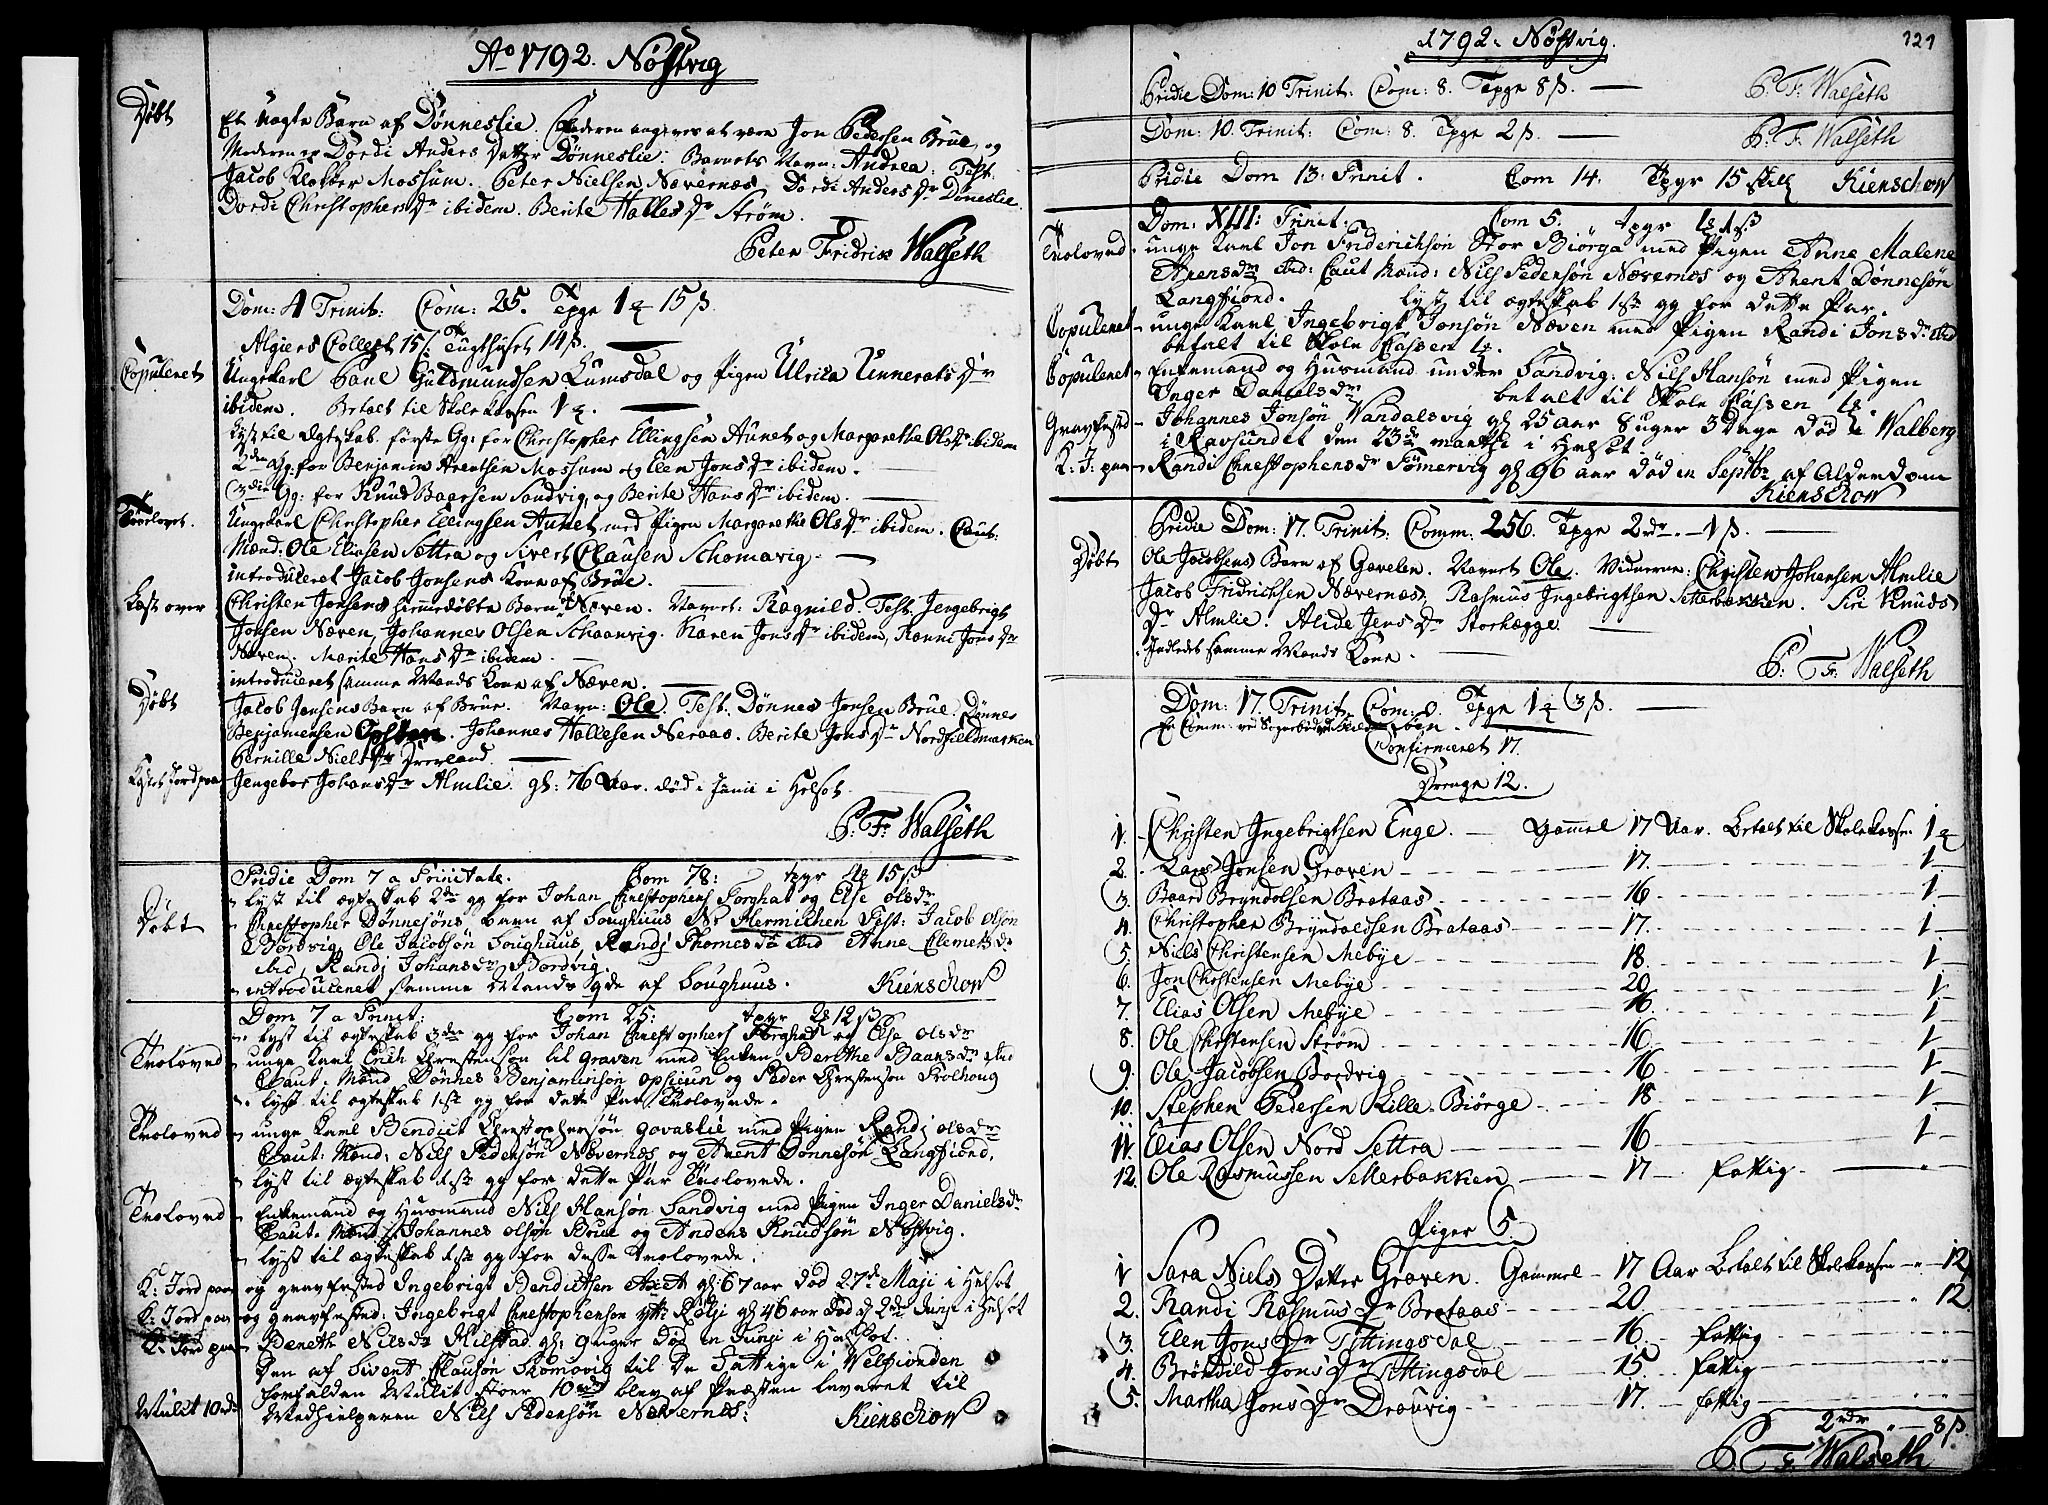 Ao 1792. Nøstvig
Døbt
Et Uægte Barn af Dønneslie. Faderen angives at være Jon Pedersen Brue, og
Moderen er Dordi Anders Datter Dønneslie. Barnets Navn: Andrea. Test:
Jacob Klokker Mossum. Peter Nielsen Nævernæs. Dordi Anders Dr Døneslie.
Dordi Christophers Dr ibidem. Berite Halles Dr Strøm.
Peter Fridrix Walseth
Dom: 4 Trinit: Com: 25. Tpgr 15 ß.
Algiers Collect 15 ß. Tugthuset 14 ß.
Copuleret
Ungekarl Paul Guldmundsen Lumsdal og Pigen Ulrica Unnerats Dr
ibidem. Betalt til Skole kassen 1
Lyst til Ægteskab første Gg: for Christopher Ellingsen Aunet og Margarethe Ols Dr ibidem
2den Gg. for Benjamin Arentsen Mossum og Elen Jons Dr ibidem.
3die Gg: for Knud Baarsen Sandvig og Berite Hans Dr ibidem.
Ungekarl Christopher Ellingsen Aunet med Pigen Margarethe Ols Dr ibidem. Caut:
Mænd: Ole Eliasen Settra og Sivert Clausen Schomavig.
introduceret Jacob Jonsens Kone af Brue.
Læst over
Christen Jonsens hiemedøbte Barn Næven. Navnet: Ragnild. Test. Jengebrigt
Jonsen Næven, Johannes Olsen Schaanvig. Karen Jons Dr ibidem, Ranni Jons Dr
Næven. Marite Hans Dr ibidem.
introduceret samme Mands Kone af Næven.
Døbt
Jacob Jensens Barn af Brue. Navn: Ole. Test. Dønnes Jonsen Brue, Dønnes
Benjaminsen. Johannes Hallesen Neraas. Berite Jons Dr Nordfieldmarken
Pernille Niels Dr Drevland.
Kastet Jord paa
Jengebor Johans Dr Almlie. gl: 76 Aar. død i Junii i Helsot.
P: Fr: Walseth
Pridie Dom 7 a Trinitate. Com 78: tpgr 15 ß
lyst til ægteskab 2de gg for Johan Christophers Torghat og Else olsdr
Døbt
Christopher Dønnesøns barn af Soughuus Nv Hermichen Test: Jacob olsøn
Bordvig, Ole Jacobsøn Soughuus, Randj Thomesdr ibid Anne Clemetsdr
ibid, Randj Johansdr Bordvig.
introduceret samme Mands qde af Soughuus. Kierschow
Dom 7 a Trinit: Com 25: tpgr 12 ß
lyst til ægteskab 3de gg for Johan Christophers Torghat og Else olsdr
Troloved
unge Karl Erich Christensøn til Graven med Enken Berethe Baarsdr ibid
Caut: Mænd Dønnes Benjaminsøn opsiøun og Peder Christensøn Trolhoug
lyst til ægteskab 1ste gg for dete Par Trolovede.
Troloved
unge Karl Bendict Christophersøn govaslie med Pigen Randj olsdr
Caut: Mænd: Nils Pedersøn Nævernæs og Arent Dønnesøn Langfiord,
lyst til ægteskab 1ste gg for dette Par Trolovede.
Troloved
Enkemand og Husmand Nils Hansøn Sandvig med Pigen Inger Danielsdr
Caut: Mænd Johannes olsøn Brue og Anders Knudsøn Nøstvig.
lyst til ægteskab 1ste gg for desse trolovede.
K: Jord paa og gravfested Ingebrigt Bendictsen gl: 67 aar død 27de Maji i Helsot
K: Jord paa og gravfested: Ingebrigt Christophersøn gl 46 aar død d 2de Junji i Helsot
K: Jord paa Bereth Nilsdr Hilstad gl: 9 uger død in Junji i Helsot.
Den af Sivert Clausøn Skomovig til De Fattige i Velfiorden
forfalden Mulct stoer 10 blev af Præsten leveret til
Mulct 10
Medhielperen Nils Pedersøn Nævernes: Kierschow
1792. Nøstvig. 121
Pridie Dom: 10 Trinit: Com: 8. Tpgr 8 ß. P: Fr: Walseth
Dom: 10. Trinit: Com: 8. Tpgr 2 ß. P. Fr: Walseth
Pridie Dom 13: Trinit. Com 14. Tpgr 15 skill Kierschow
Dom: XIII: Trinit: Com 5. tpgr
Troloved
unge Karl Jon Friderichsøn Stor Biørga med Pigen Anne Malene
Arensdr ibid: Caut Mænd: Nils Pedersøn Nævernæs og Arent Dønnesøn
Langfiord. lyst til ægteskab 1ste gg for dette Par.
Copuleret
unge Karl Ingebrigt Jonsøn Næven med Pigen Randi Jonsdr ibid
betalt til Skole Cassen
Copuleret
Enkemand og Husmand under Sandvig: Nils Hansøn med Pigen
Inger Danielsdr betalt til Skole Cassen
Gravfested
Johannes Jonsøn Vandalsvig gl 25 aar 8 uger 3 Dage død i Walberg
i Ravsundet den 23de martji i Helsot.
K: J: paa
Randi Christophersdr Tømervig gl 96 aar død in Septbr af Alderdom
Kierschow
Pridie Dom: 17. Trinit: Comm: 256. Tpgr 2 rdr. 1 ß.
Døbt
Ole Jacobsens Barn af Gavelen. Navnet Ole. Vidnerne: Christen Johansen Almlie
Jacob Fridrichsen Nævernæs, Rasmus Ingebrigtsen Setterbakken. Siri Knuds
Dr Almlie. Alide Jens Dr Storhægge.
Indledet samme Mands Kone.
P: Fr: Walseth
Dom: 17. Trinit: Com: 8. Tpgr 3 ß.
Confirmeret 17.
Drenge 12.
1. Christen Ingebrigtsen Enge. Gammel 17 Aar. betalt til Skolekassen 1
2. Lars Jonsen Graven 17. 1
3. Baard Bryndolsen Brataas 16 1
4. Christopher Bryndolssen Brataas 17. 1
5. Niels Christensen Mebye 18. 1
6. Jon Christensen Mebye 20 1
7. Elias Olsen Mebye 16. 1
8. Ole Christensen Strøm 16 1
9. Ole Jacobsen Bordvig 16 1
10. Stephen Pedersen Lille-Biørge 18 1
11. Elias Olsen Nord Settra 16 1
12. Ole Rasmussen Setterbakken 17 fattig.
Piger 5.
1 Sara Niels Datter Graven. Gammel 17 Aar betalt til Skolekassen 12
2. Randi Rasmus Dr Brataas 20 12
3. Elen Jons Dr Tittingsdal 16. fattig
4. Brønild Jons Dr Tittingsdal 15. fattig
5. Martha Jons Dr Drøuvig 17. fattig
2 rdr 8 ß.
P. Fr Walseth